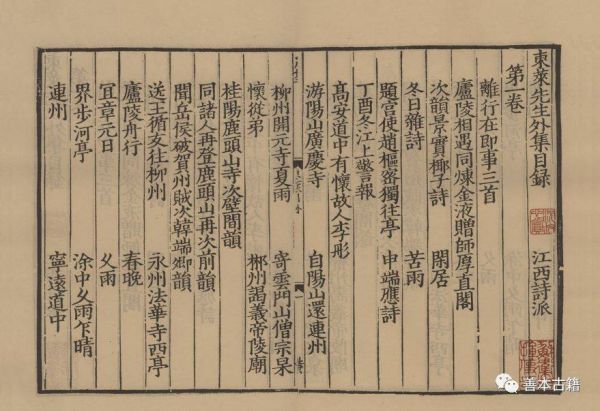 東萊先生外集目録
第一卷 江西詩派
離行在即事三首
廬陵相遇同煉金液贈師厚直閣
次韻景實椰子詩 閑居
冬日雜詩 苦雨
題宫使趙樞密獨往亭 申端應詩
丁酉冬江上警報
高安道中有懷故人李彤
游陽山廣慶寺 自陽山還連州
柳州開元寺夏雨 寄雲門山僧宗杲
懷從弟 郴州謁義帝陵廟
桂陽鹿頭山寺次壁間韻
同諸人再登鹿頭山再次前韻
聞岳侯破賀州賊次韓端卿韻
送王循友往柳州 永州法華寺西亭
廬陵舟行 春晚
宜章元日 久雨
界步河亭 涂中久雨乍晴
連州 寧遠道中
善本古籍